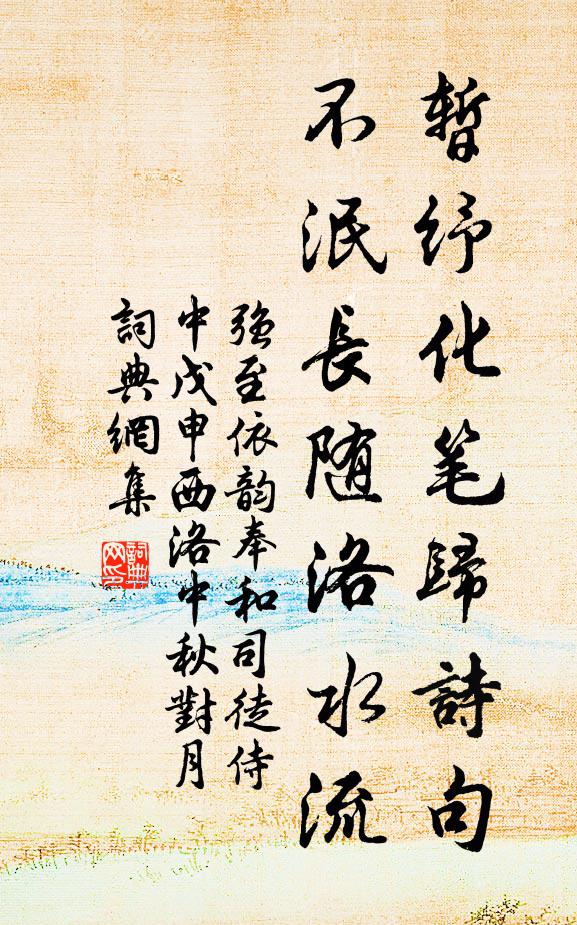 暫纾化笔歸詩句
不泯長随洛水流
强至依韵奉和司徒侍
中戊申西洛中秋對月
詞典網集
詞典
网印